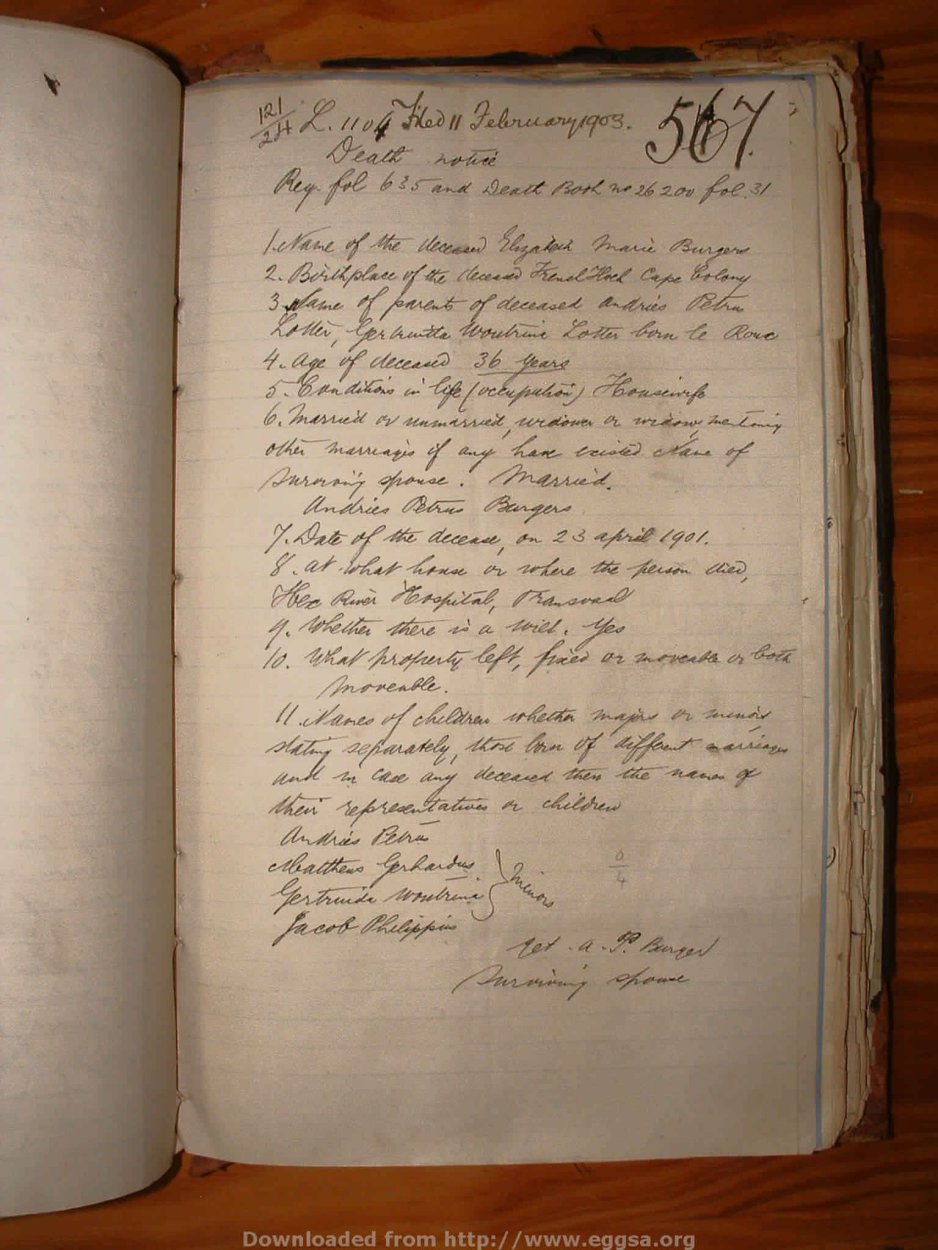 121/24 L. 1104 Filed 11 February 1903. 567.
Death notice
Reg. fol 635 and Death Book no 26200 fol. 31
1. Name of the deceased Elizabeth Maria Burgers
2. Birthplace of the deceased French Hoek Cape Colony
3. Name of parents of deceased Andries Petrus
Lotter, Gertruida Woutrina Lotter born le Roux
4. Age of deceased 36 years
5. Conditions in life (occupation) Housewife
6. Married or unmarried, widower or widow,
other marriages if any have existed Name of
surviving spouse. Married.
Andries Petrus Burgers
7. Date of the decease, on 23 april 1901.
8. at what house or where the person died,
Hex River Hospital, Transvaal
9. Whether there is a will. Yes
10. What property left, fixed or moveable or both
Moveable.
11. Names of children whether majors or minors
stating separately, those born of different marriages
and in case any deceased then the names of
their representatives or children
Andries Petrus
Mattheus Gerhardus
Gertruida Woutrina } Minors
Jacob Philippus
0/4
get. A. P. Burger
Surviving spouse
Downloaded from http://www.eggsa.org